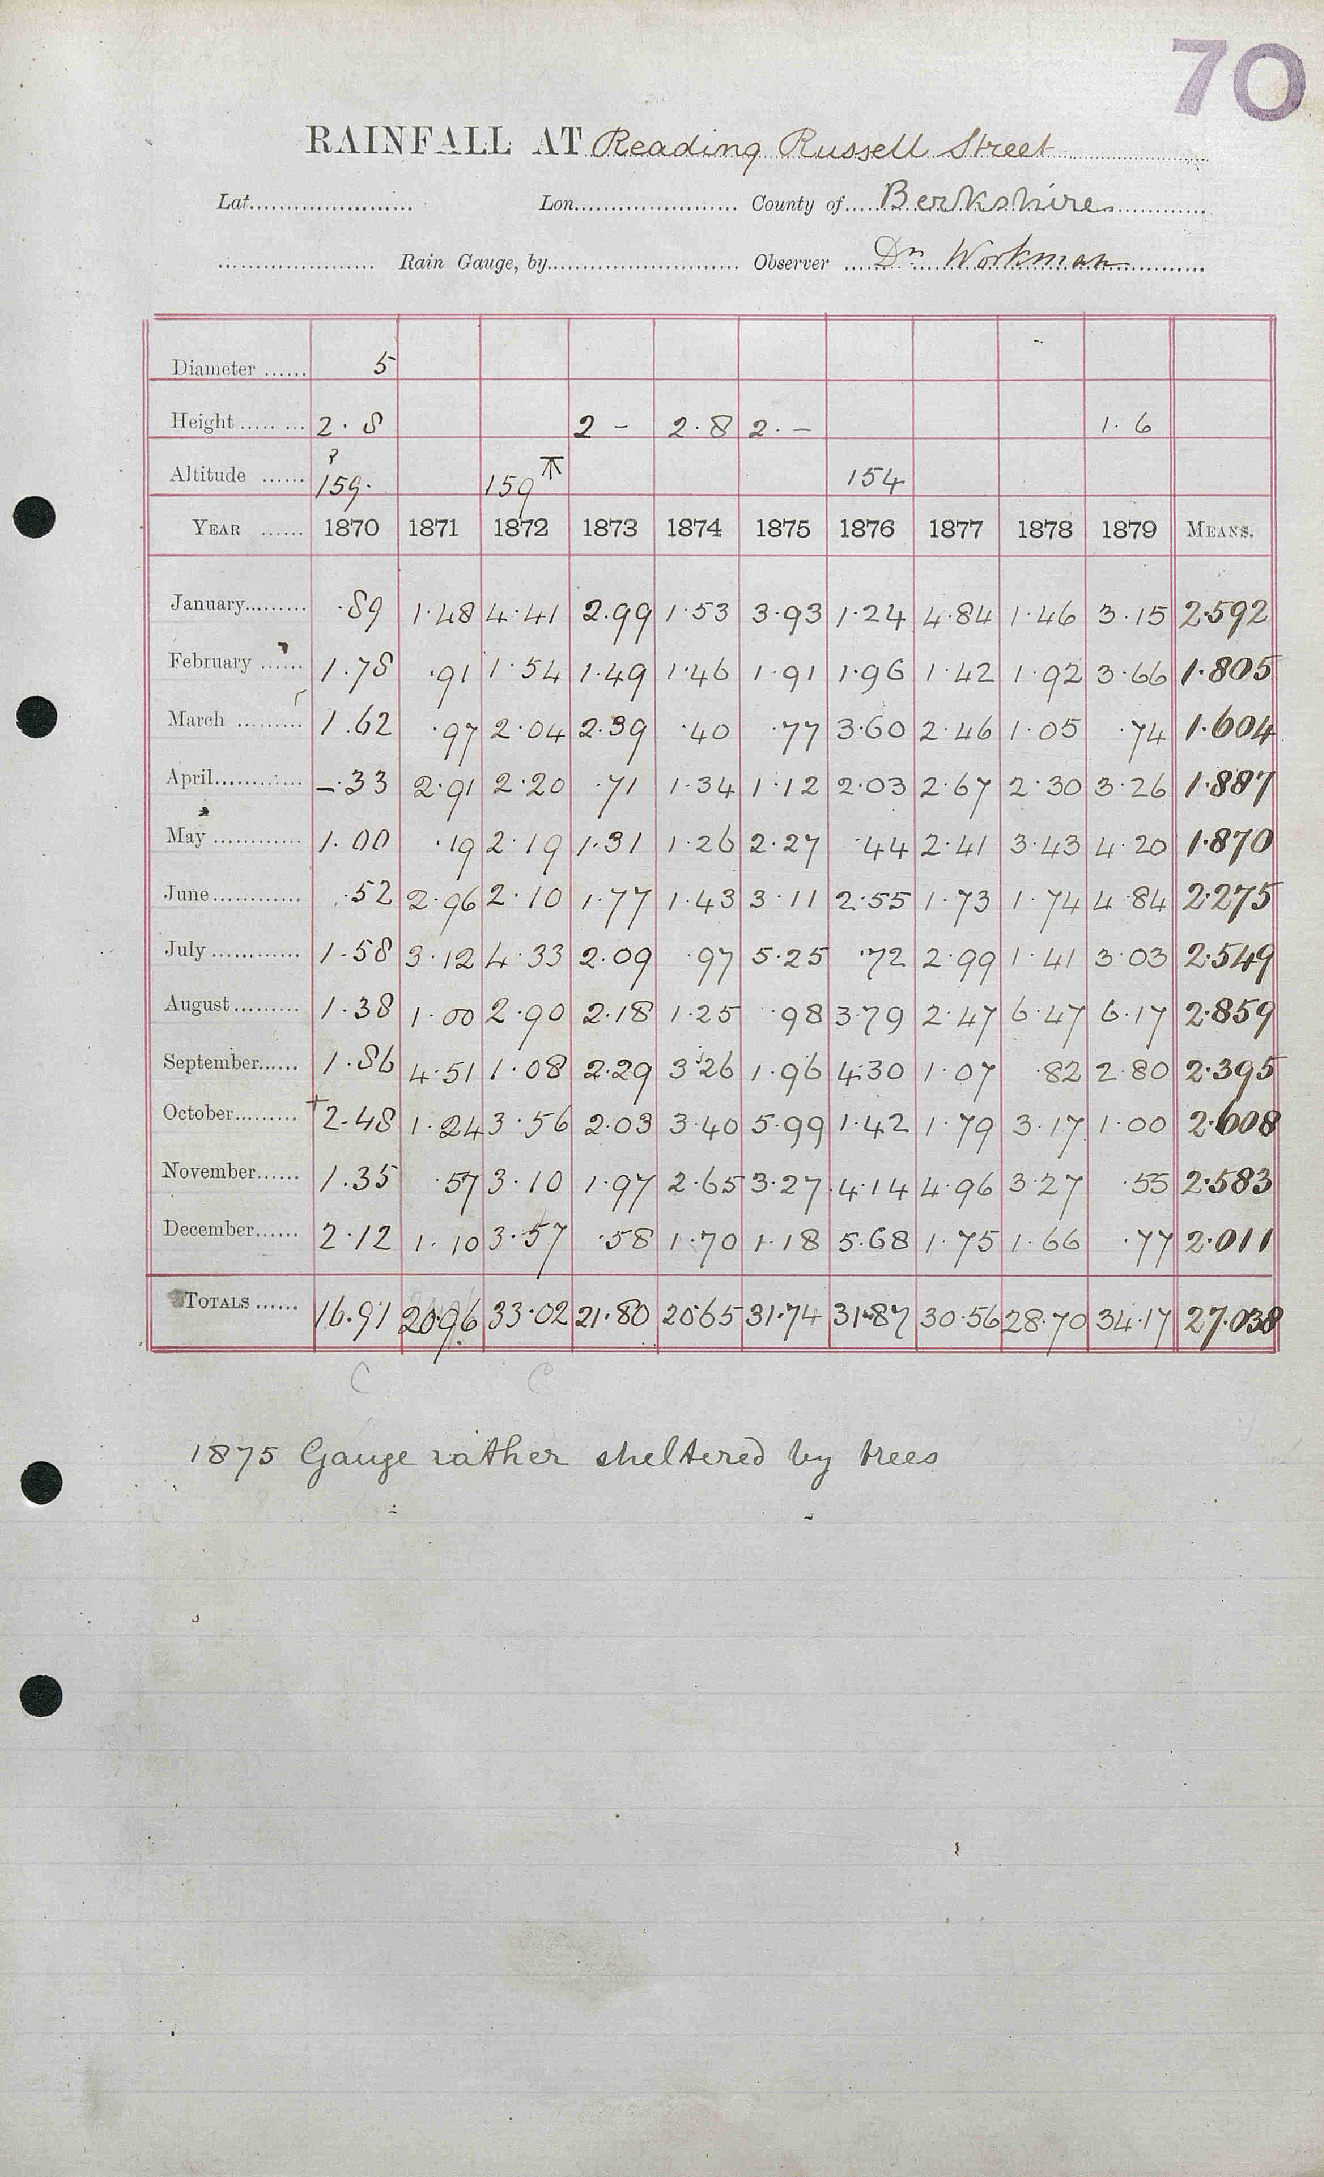 70
RAINFALL AT Reading Russell Street
Lat...................... Lon...................... County of.....Berkshire
..................... Rain Gauge, by.......................... Observer ....Dr. Workman
Diameter ...... 5
Height ..... ... 2.8 2 - 2.8 2. - 1.6
Altitude ...... ? 159. 159 154
YEAR ...... 1870 1871 1872 1873 1874 1875 1876 1877 1878 1879 MEANS.
January......... .89 1.48 4.41 2.99 1.53 3.93 1.24 4.84 1.46 3.15 2.592
February ...... 1.78 .91 1.54 1.49 1.46 1.91 1.96 1.42 1.92 3.66 1.805
March ......... 1.62 .97 2.04 2.39 .40 .77 3.60 2.46 1.05 .74 1.604
April............ -.33 2.91 2.20 .71 1.34 1.12 2.03 2.67 2.30 3.26 1.887
May ............ 1.00 .19 2.19 1.31 1.26 2.27 .44 2.41 3.43 4.20 1.870
June............. .52 2.96 2.10 1.77 1.43 3.11 2.55 1.73 1.74 4.84 2.275
July ............. 1.58 3.12 4.33 2.09 .97 5.25 .72 2.99 1.41 3.03 2.549
August ......... 1.38 1.00 2.90 2.18 1.25 .98 3.79 2.47 6.47 6.17 2.859
September...... 1.86 4.51 1.08 2.29 3.26 1.96 4.30 1.07 .82 2.80 2.395
October......... +2.48 1.24 3.56 2.03 3.40 5.99 1.42 1.79 3.17 1.00 2.608
November...... 1.35 .57 3.10 1.97 2.65 3.27 4.14 4.96 3.27 .55 2.583
December...... 2.12 1.10 3.57 .58 1.70 1.18 5.68 1.75 1.66 .77 2.011
TOTALS ...... 16.91 20.96 33.02 21.80 20.65 31.74 31.87 30.56 28.70 34.17 27.038
C C
1875 Gauge rather sheltered by trees